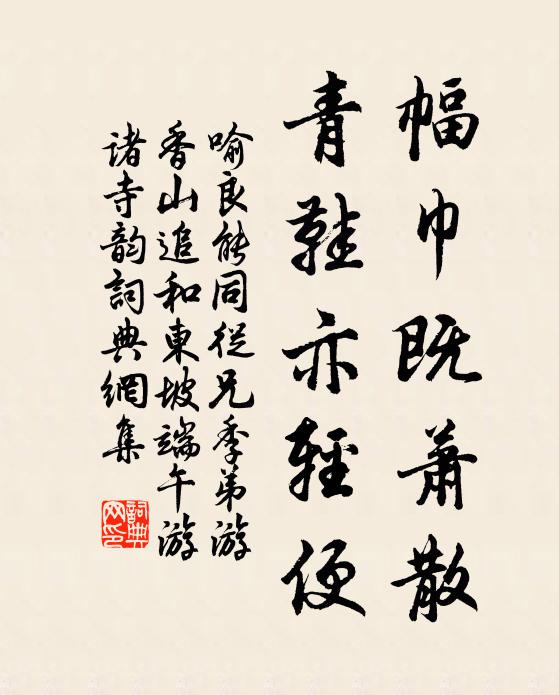 幅巾既蕭散
青鞋亦輕便
喻良能同從兄季弟游
香山追和東坡端午游
諸寺韵詞典網集
詞典网印